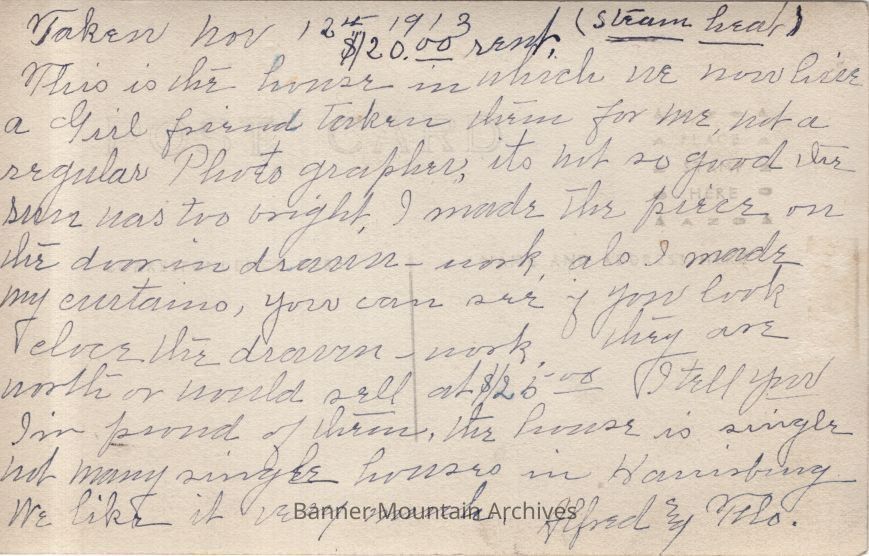 Taken Nov 12th 1913 (steam heat)
$20.00 rent,
This is the house in which we now live
a Girl friend taken them for me, not a
regular Photo grapher, its not so good the
sun was too bright, I made the piece on
the door in drawn-work, also I made
my curtains, you can see if you look
close the drawn-work, they are
worth or would sell at $25.00 I tell you
I'm proud of them, the house is single
not many single houses in Harrisburg
We like it very much. Alfred & Flo.
Banner Mountain Archives